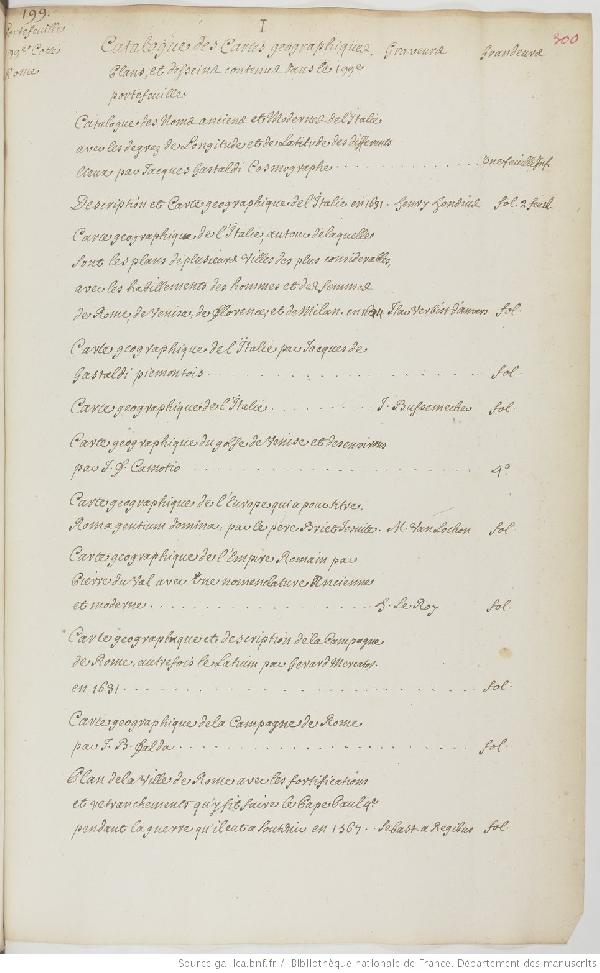 199.
Portefeuille
199e Cotte
Rome
I
300
Catalogue des Cartes geographiques Graveurs Grandeurs
Plans, et desseins contenus dans le 199e
portefeuille
Catalogue des Noms anciens et Modernes de l'Italie
avec les degrez de Longitude et de Latitude des differents
lieux par Jacques Gastaldi Cosmographe
Description et Carte geographique de l'Italie en 1631. henry hondius fol. 2 feuil.
Carte geographique de l'Italie, autour de laquelle
sont les plans de plusieurs villes des plus considerables,
avec les habillements des hommes et des femmes
de Rome, de Venise, de Florence, et de Milan. en fol.
Carte geographique de l'Italie par Jacques de
Gastaldi piemontois fol.
Carte geographique de l'Italie J. Bussemecher fol.
Carte geographique du golfe de Venise et des environs
par J. F. Camotio 4o
Carte geographique de l'Europe qui a pour titre
Roma gentium domina, par le pere Briet Jesuite. M. Van Lochon fol.
Carte geographique de l'Empire Romain par
Pierre du Val avec une nomenclature Ancienne
et moderne H. Le Roy fol.
Carte geographique et description de la Campagne
de Rome, autrefois le Latium par Gerard Mercator
en 1631 fol.
Carte geographique de la Campagne de Rome
par J. B. falda fol.
Plan de la Ville de Rome avec les fortifications
et retranchements qu'y fit faire le Pape Paul 4e
pendant la guerre qu'il eut a soutenir en 1567. Sebast. a Regibus fol.
Source gallica.bnf.fr / Bibliothèque nationale de France. Département des manuscrits